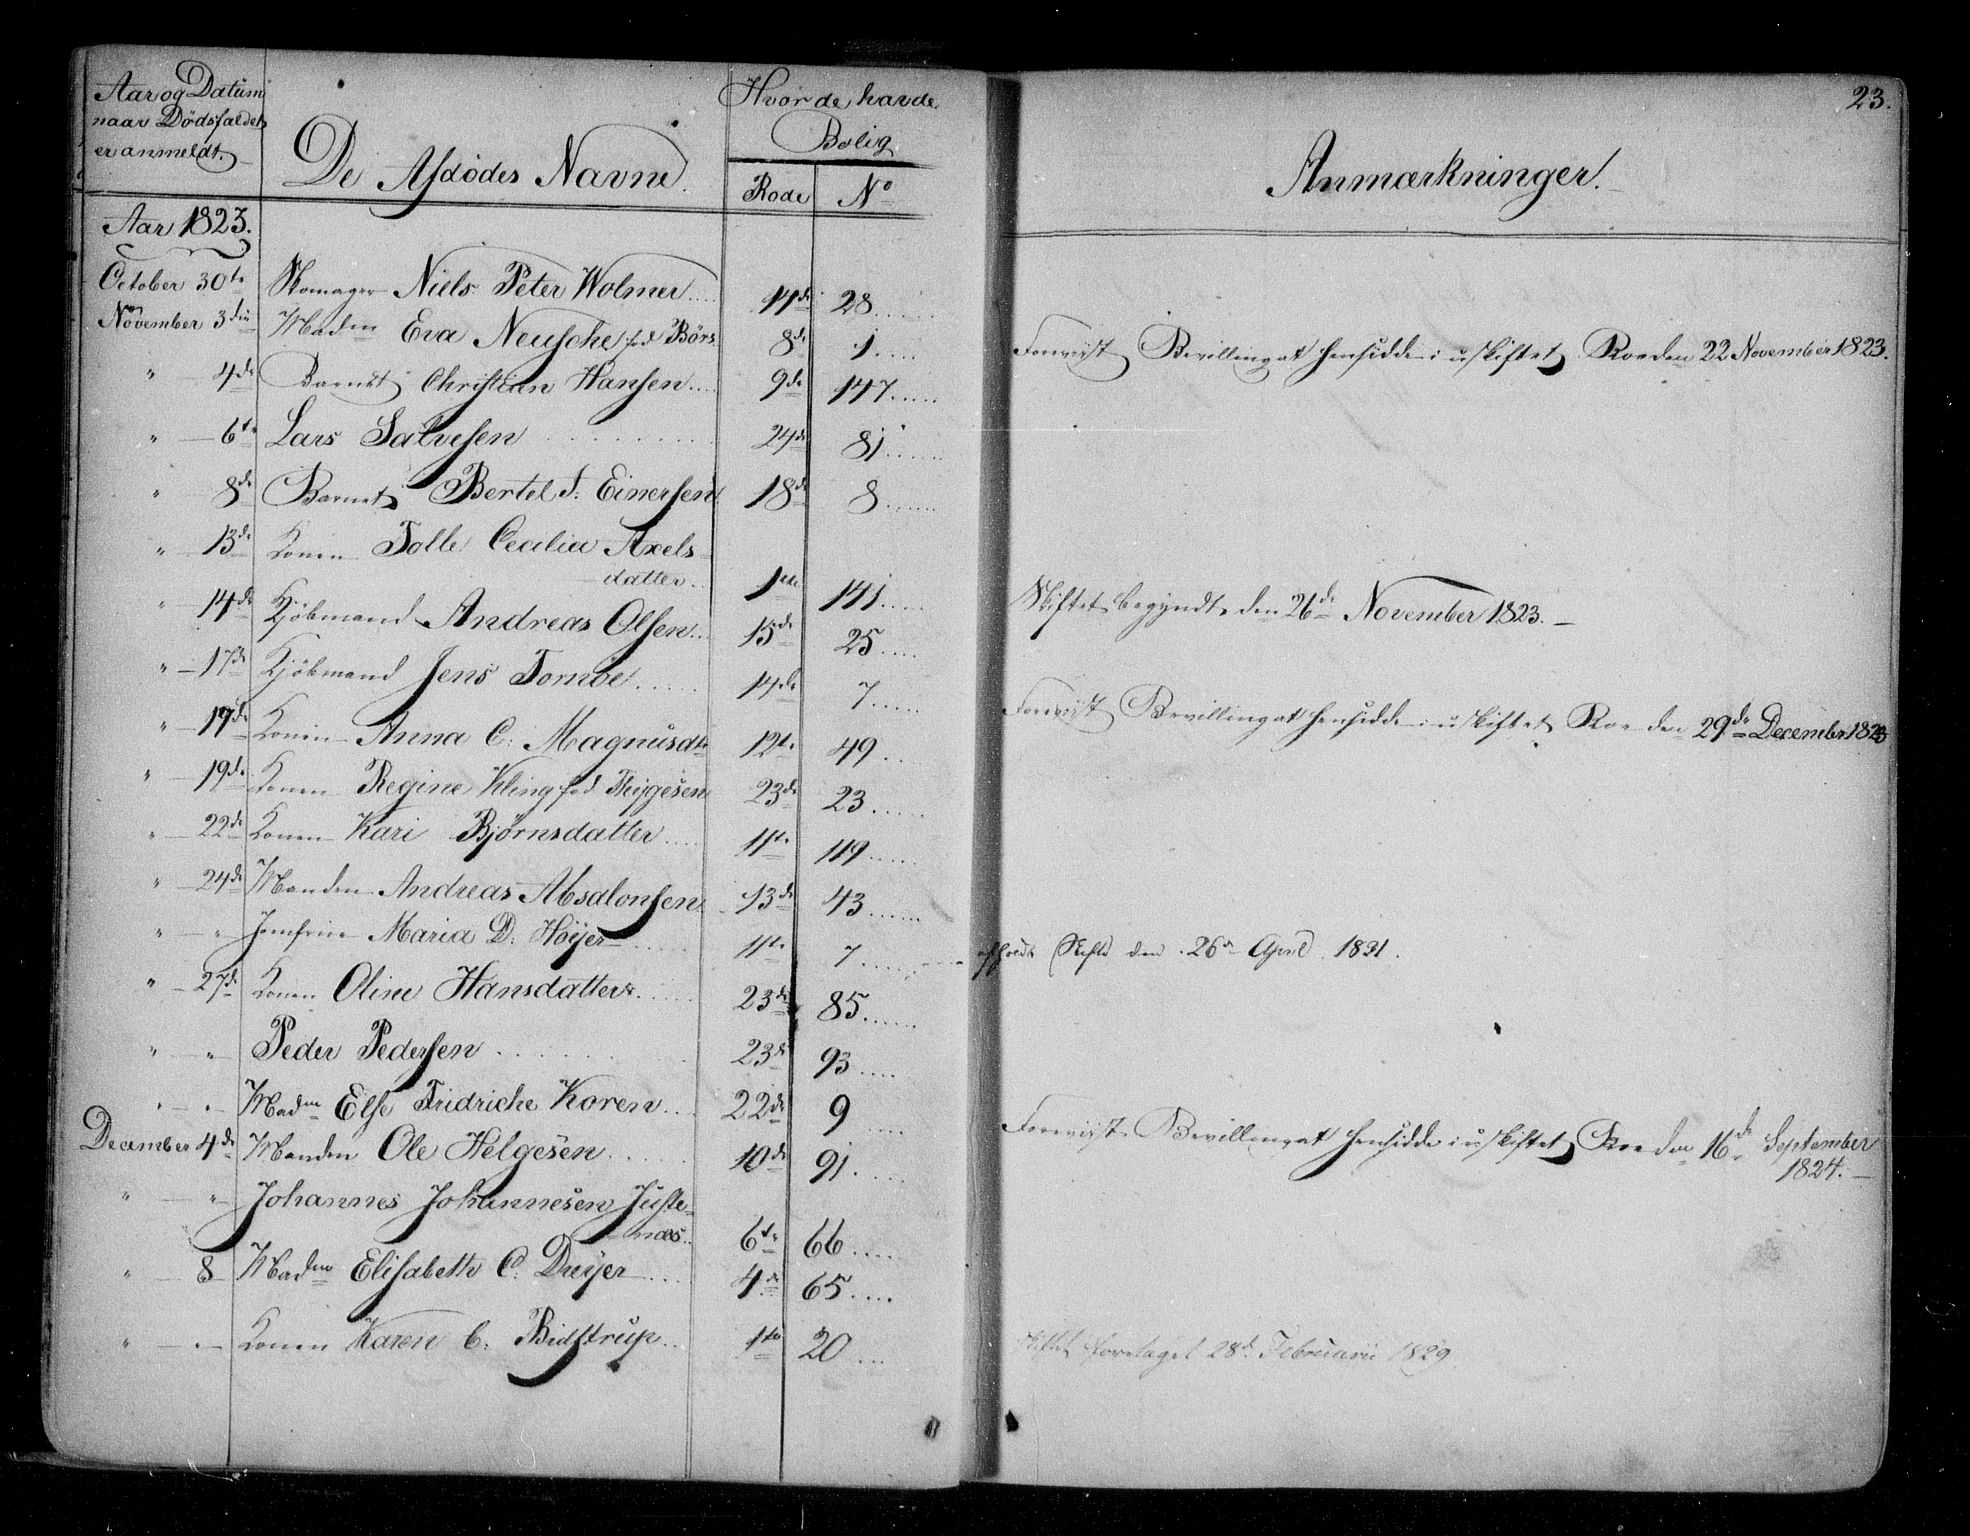 Aar og Datum
naar Dødsfaldet
er anmeldt.
De Afdødes Navne.
Hvor de havde
Bolig
Rode No
23.
Anmærkninger.
Aar 1823.
October 30te Skomager Niels Peter Wolmer 17de 28
November 3die Madm Eva Neusche fød Børs 8de 1 Foreviist Bevilling at hensidde i uskiftet Boe den 22 November 1823.
" 4de Barnet Christian Hansen 9de 147
" 6te Lars Salvesen 24de 81
" 8de Barnet Bertel S: Einersen 18de 8
" 13de Konen Tolle Cecilia Axels
datter 1ste 141
" 14de Kjöbmand Andreas Olsen 15de 25 Skiftet begyndt den 26de November 1823.
" 17de Kjöbmand Jens Tornöe 14de 7
" 19de Konen Anna C: Magnusdtr 12te 49 Foreviist Bevilling at hensidde i uskiftet Boe den 29de December 1823
" 19de Konen Regine Kling fød Thygesen 23de 23
" 22de Konen Kari Bjørnsdatter 11te 119
" 24de Manden Andreas Absalonsen 13de 43
" " Jomfrue Maria D. Høyer 11te 7 afholdt Skifte den 26de April 1831.
" 27de Konen Oline Hansdatter 23de 85
" " Peder Pedersen 23de 93
" " Madm Else Fridriche Koren 22de 9
December 4de Manden Ole Helgesen 10de 91 Foreviist Bevilling at hensidde i uskiftet Boe den 16de September
1824.
" " Johannes Johannesen Juste-
næs 6te 66
" 8 Madm Elisabeth C: Dreyer 4de 65
" " Konen Karen C: Bidstrup 1ste 20 Skiftet foretaget 28de Februarii 1829